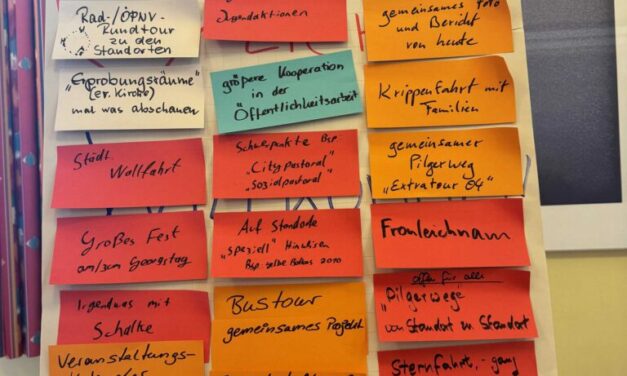 Rad-/ÖPNV-
Rundtour
zu den
Standorten
"Erprobungsräume"
(ev. Kirche)
mal was abschauen
Städt
Wallfahrt
Großes Fest
am/zum Georgstag
Irgendwas mit
Schalke
Veranstaltungs-
Jugendaktionen
größere Kooperation
in der
Öffentlichkeitsarbeit
Schwerpunkte Bsp
"Citypastoral"
"Sozialpastoral"
Auf Standorte
"speziell" hinweisen
Bsp gelbe Ballons 2010
Bustour
gemeinsames Projekt
gemeinsames Foto
und Bericht
von heute
Krippenfahrt mit
Familien
gemeinsamer
Pilgerweg
"Extratour 04"
Fronleichnam
offen für alle
"Pilgerwege
von Standort zu Standort
Sternfahrt, - gang